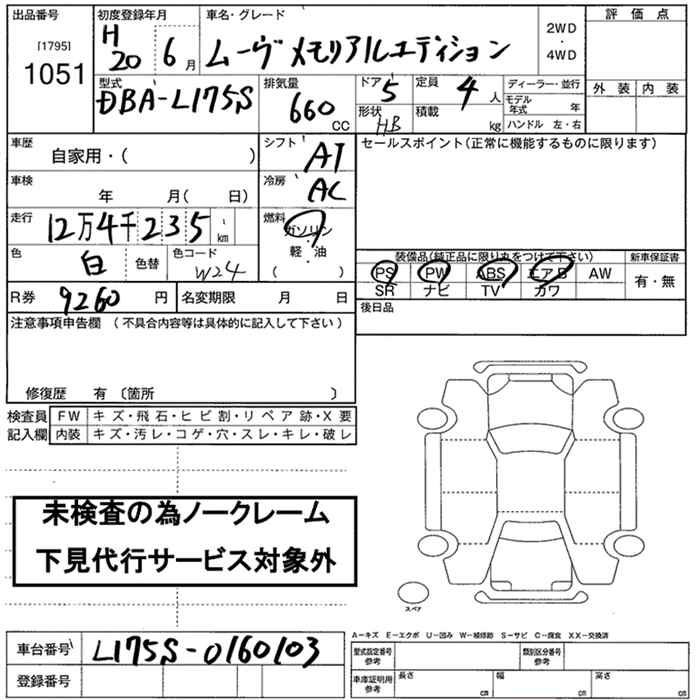 出品番号
[1795]
1051
初度登録年月
H
20 6月
車名・グレード
ムーヴ メモリアルエディション
2WD
・
4WD
評価点
外装 内装
型式
DBA-L175S
排気量
660
CC
ドア 5
形状
HB
定員 4人
積載 kg
ディーラー・並行
モデル
年式 年
ハンドル 左・右
車歴
自家用・( )
シフト AT
車検
年 月( 日)
冷房 AC
走行
12万4千235
km
燃料
ガソリン
・
軽・油
( )
色
白
色替
色コード
W24
R券 9260 円
名変期限 月 日
セールスポイント(正常に機能するものに限ります)
装備品(純正品に限り丸をつけて下さい)
新車保証書
PS PW ABS エアB AW
SR ナビ TV カワ
有・無
後日品
注意事項申告欄 (不具合内容等は具体的に記入して下さい)
修復歴 有 〔箇所 〕
検査員
記入欄
FW キズ・飛石・ヒビ割・リペア跡・X要
内装 キズ・汚レ・コゲ・穴・スレ・キレ・破レ
未検査の為ノークレーム
下見代行サービス対象外
スペア
A－キズ E－エクボ U－凹み W－補修跡 S－サビ C－腐食 XX－交換済
車台番号 L175S-0160103
登録番号
型式指定番号
参考
類別区分番号
参考
車庫証明用
参考
長さ cm
幅 cm
高さ cm